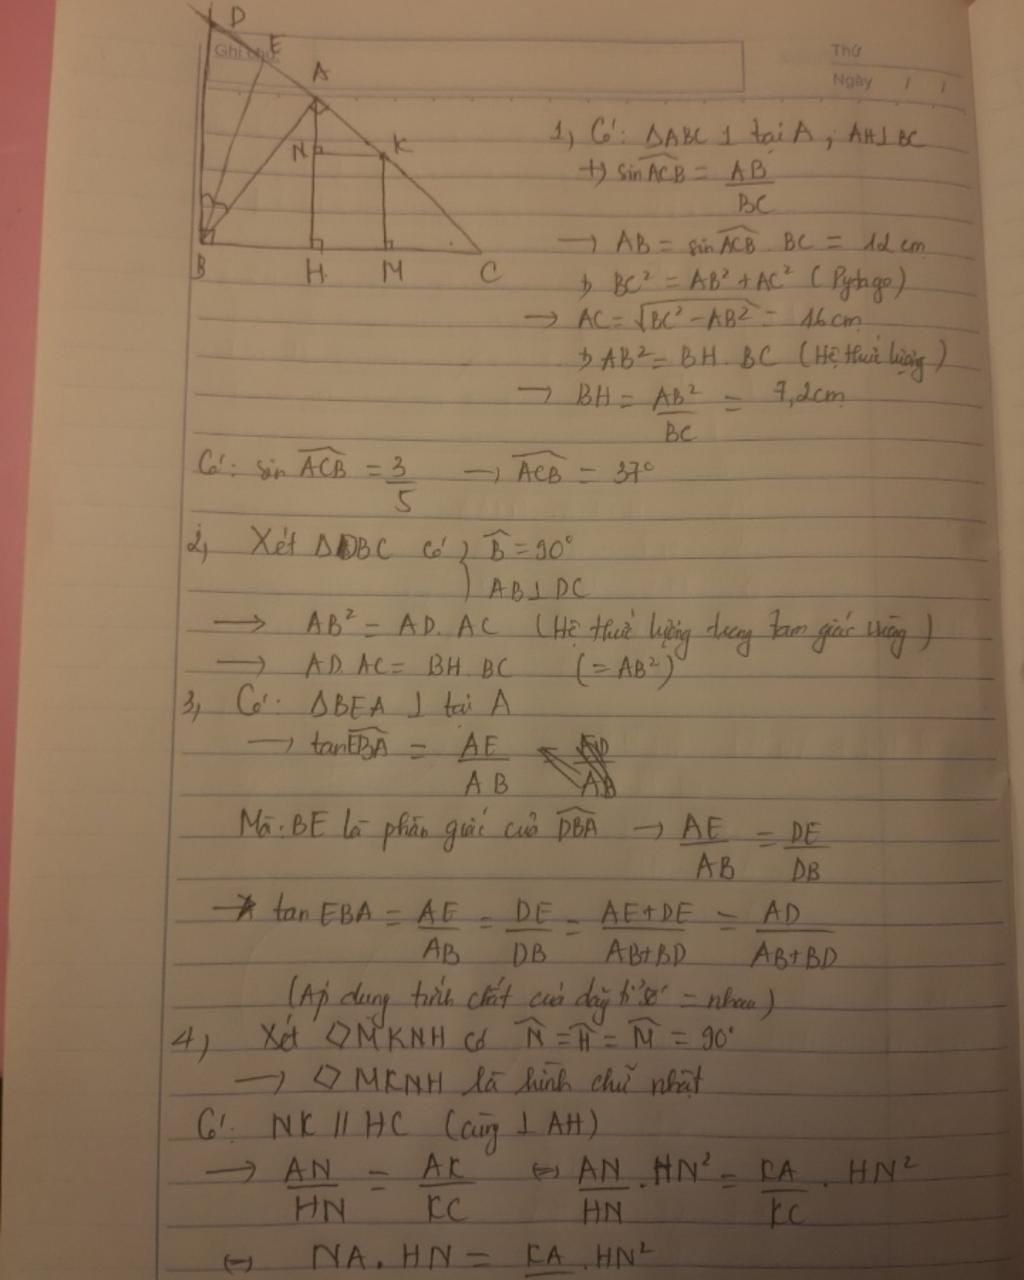 D
E
Ghi chú:
A
N
K
B
H
M
C
Thứ
Ngày / /
1, Có: ΔABC ⊥ tại A ; AH⊥BC
+) sin ACB = AB/BC
→ AB = sin ACB . BC = 12 cm
+) BC² = AB² + AC² (Pytago)
→ AC = √BC² - AB² = 16cm
+) AB² = BH . BC (Hệ thức lượng)
→ BH = AB²/BC = 7,2cm
Có: sin ACB = 3/5 → ACB = 37°
2, Xét ΔDBC có } B = 90°
AB ⊥ DC
→ AB² = AD . AC (Hệ thức lượng trong tam giác vuông)
→ AD. AC = BH . BC (= AB²)
3, Có: ΔBEA ⊥ tại A
→ tan EBA = AE/AB
Mà: BE là phân giác của DBA → AE/AB = DE/DB
→ tan EBA = AE/AB = DE/DB = AE+DE/AB+BD = AD/AB+BD
(Áp dụng tính chất của dãy tỉ số = nhau)
4, Xét ◇MKNH có N = H = M = 90°
→ ◇MKNH là hình chữ nhật
Có: NK // HC (cùng ⊥ AH)
→ AN/HN = AK/KC (=) AN/HN . HN² = KA/KC . HN²
(=) NA . HN = KA . HN²